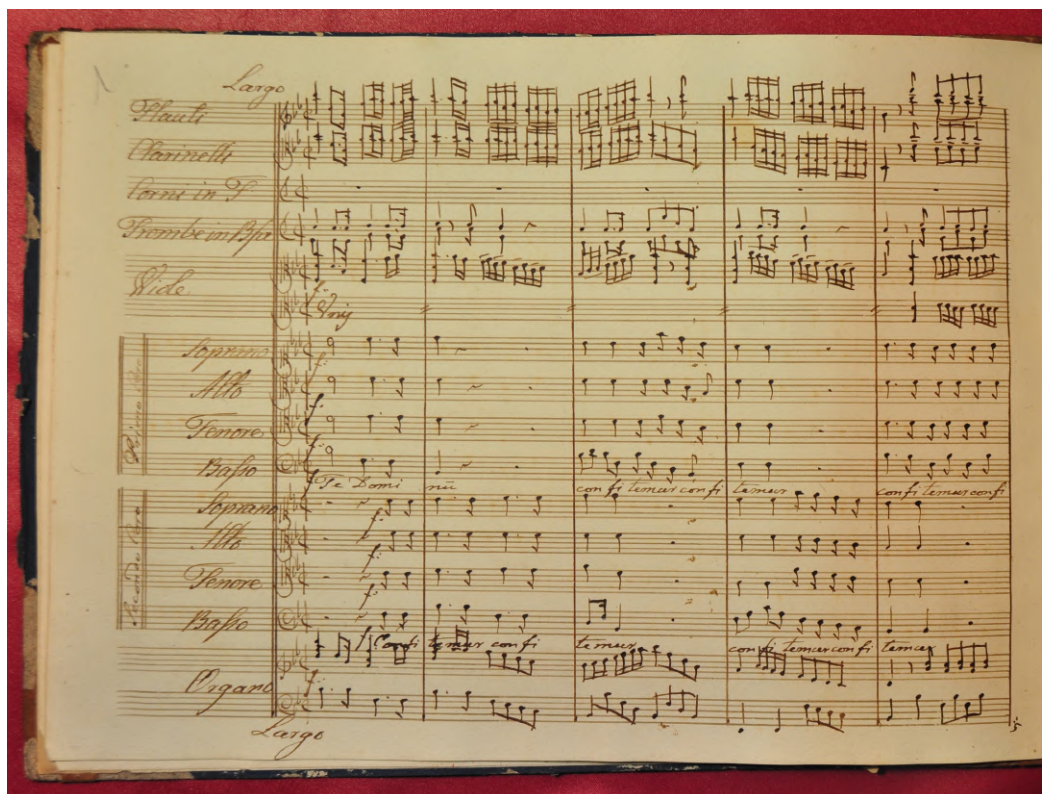 Largo
Flauti
Clarinetti
Corni in F
Trombe in B fa
Viole
f:
Unis
Primo Coro
Soprano
f:
Alto
f:
Tenore
f:
Basso
Te Domi nū confi temur confi temur confi temur confi
Secondo Coro
Soprano
f:
Alto
f:
Tenore
f:
Basso
f: Confi temur confi temur confi temur confi temur
Organo
f:
Largo